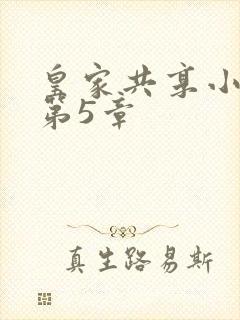 皇家共享小
第5章
真生路易斯